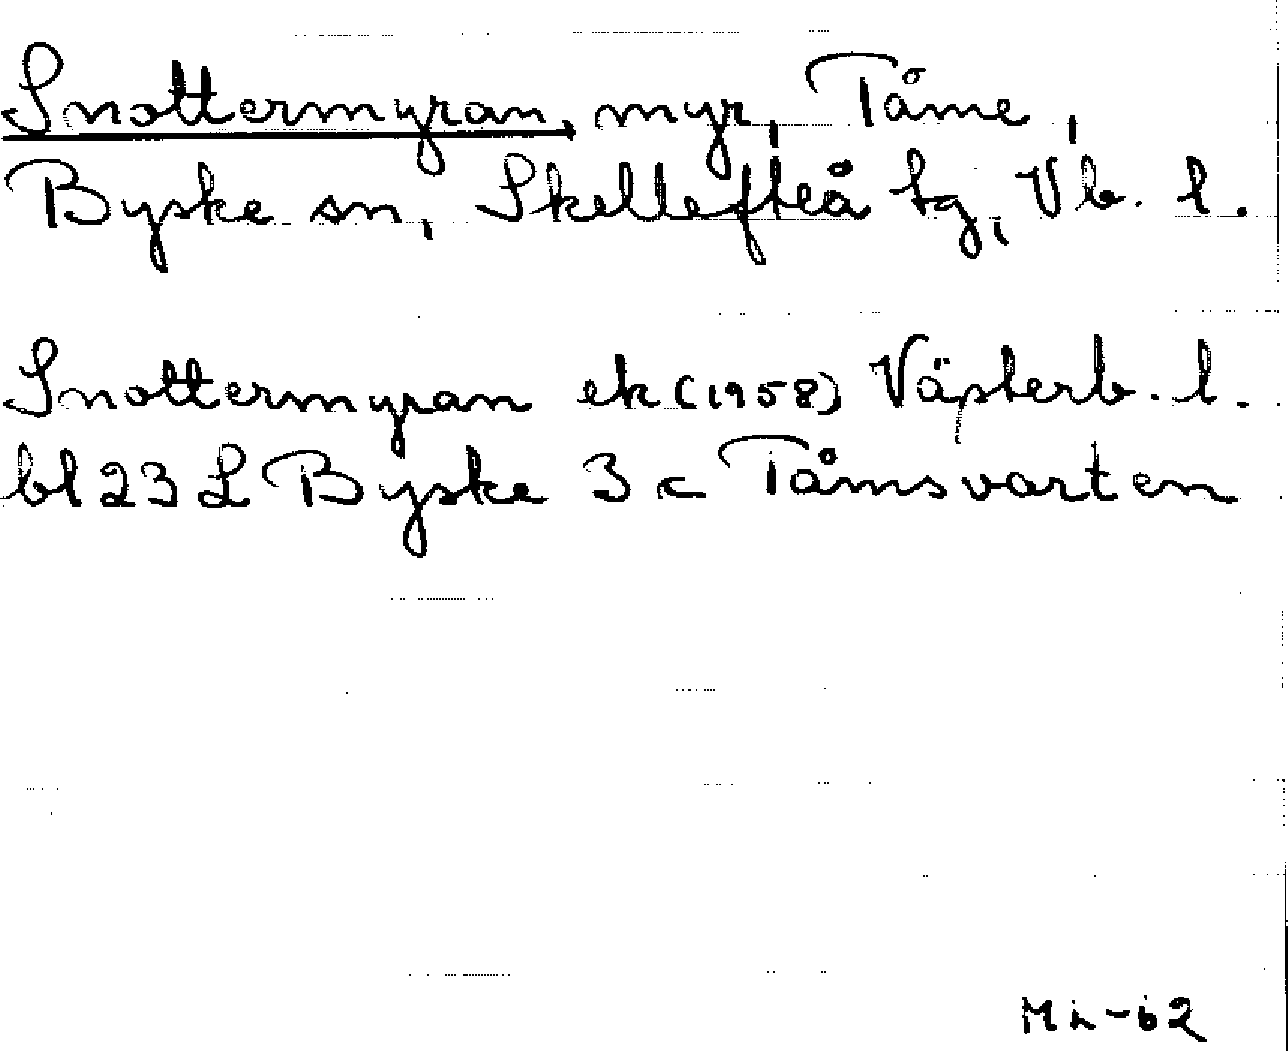 Snottermyran, myr, Tåme,
Byske sn, Skellefteå tg, Vb. l.
Snottermyran ek (1958) Västerb. l.
bl 23 L Byske 3 c Tåmsvarten